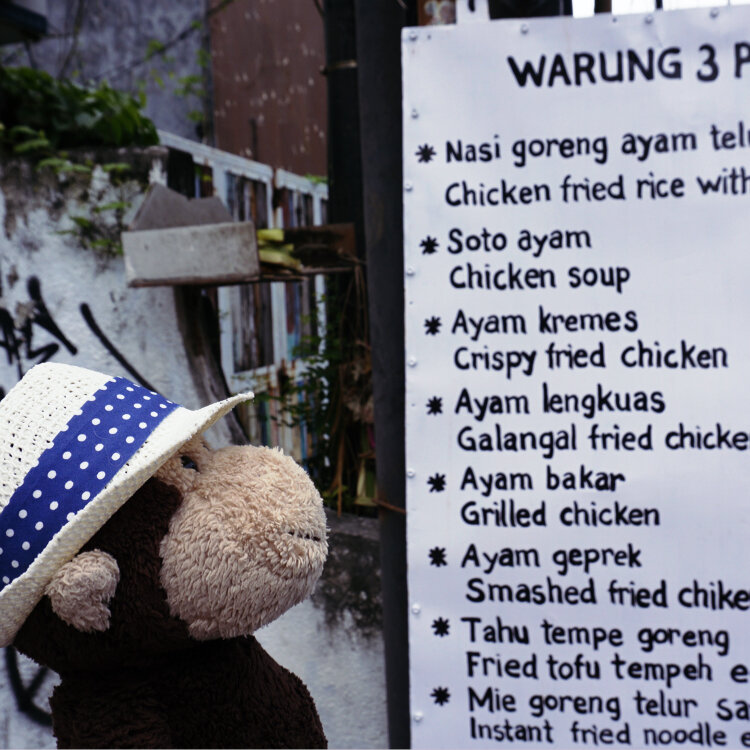 WARUNG 3 P
* Nasi goreng ayam telu
Chicken fried rice with
* Soto ayam
Chicken soup
* Ayam kremes
Crispy fried chicken
* Ayam lengkuas
Galangal fried chicke
* Ayam bakar
Grilled chicken
* Ayam geprek
Smashed fried chike
* Tahu tempe goreng
Fried tofu tempeh e
* Mie goreng telur sa
Instant fried noodle e